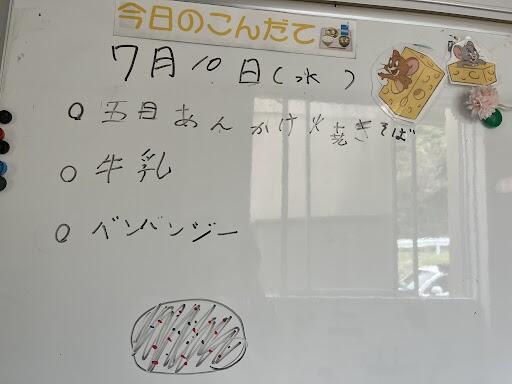 今日のこんだて
7月10日(水)
○ 五目あんかけ焼きそば
○ 牛乳
○ バンバンジー